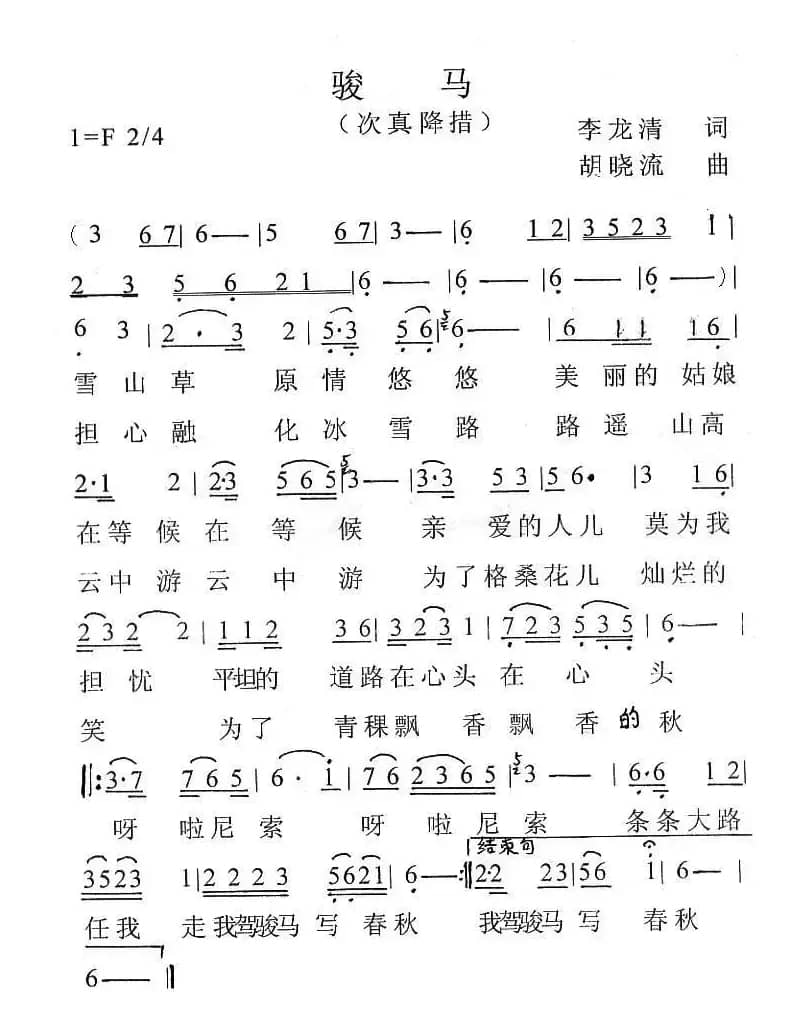 骏 马
(次真降措)
1=F 2/4
李龙清 词
胡晓流 曲
(3 67|6—|5 67|3—|6 12|3523 1|
2 3 5 6 21|6—|6—|6—)|
6 3|2·3 2|5·3 56|5 6—|6 11 16|
雪山草 原情悠悠 美丽的姑娘
担心融 化冰雪路 路遥山高
2·1 2|2·3 565|5 3—|3·3 53|565· 3 16|
在等候在等候亲 爱的人儿莫为我
云中游云中游 为了格桑花儿灿烂的
232 2|112 36|323 1|723 535|6—|
担忧 平坦的 道路在心头在心头
笑 为了 青稞飘香飘香的秋
‖:3·7 765|6·i|76 2365|5 3—|6·6 12|
呀 啦尼索 呀啦尼索 条条大路
结束句
3523 1|2223 5621|6—:‖2·2 23|56 i|6—|
任我 走我驾骏马写春秋 我驾骏马写 春秋
6—‖